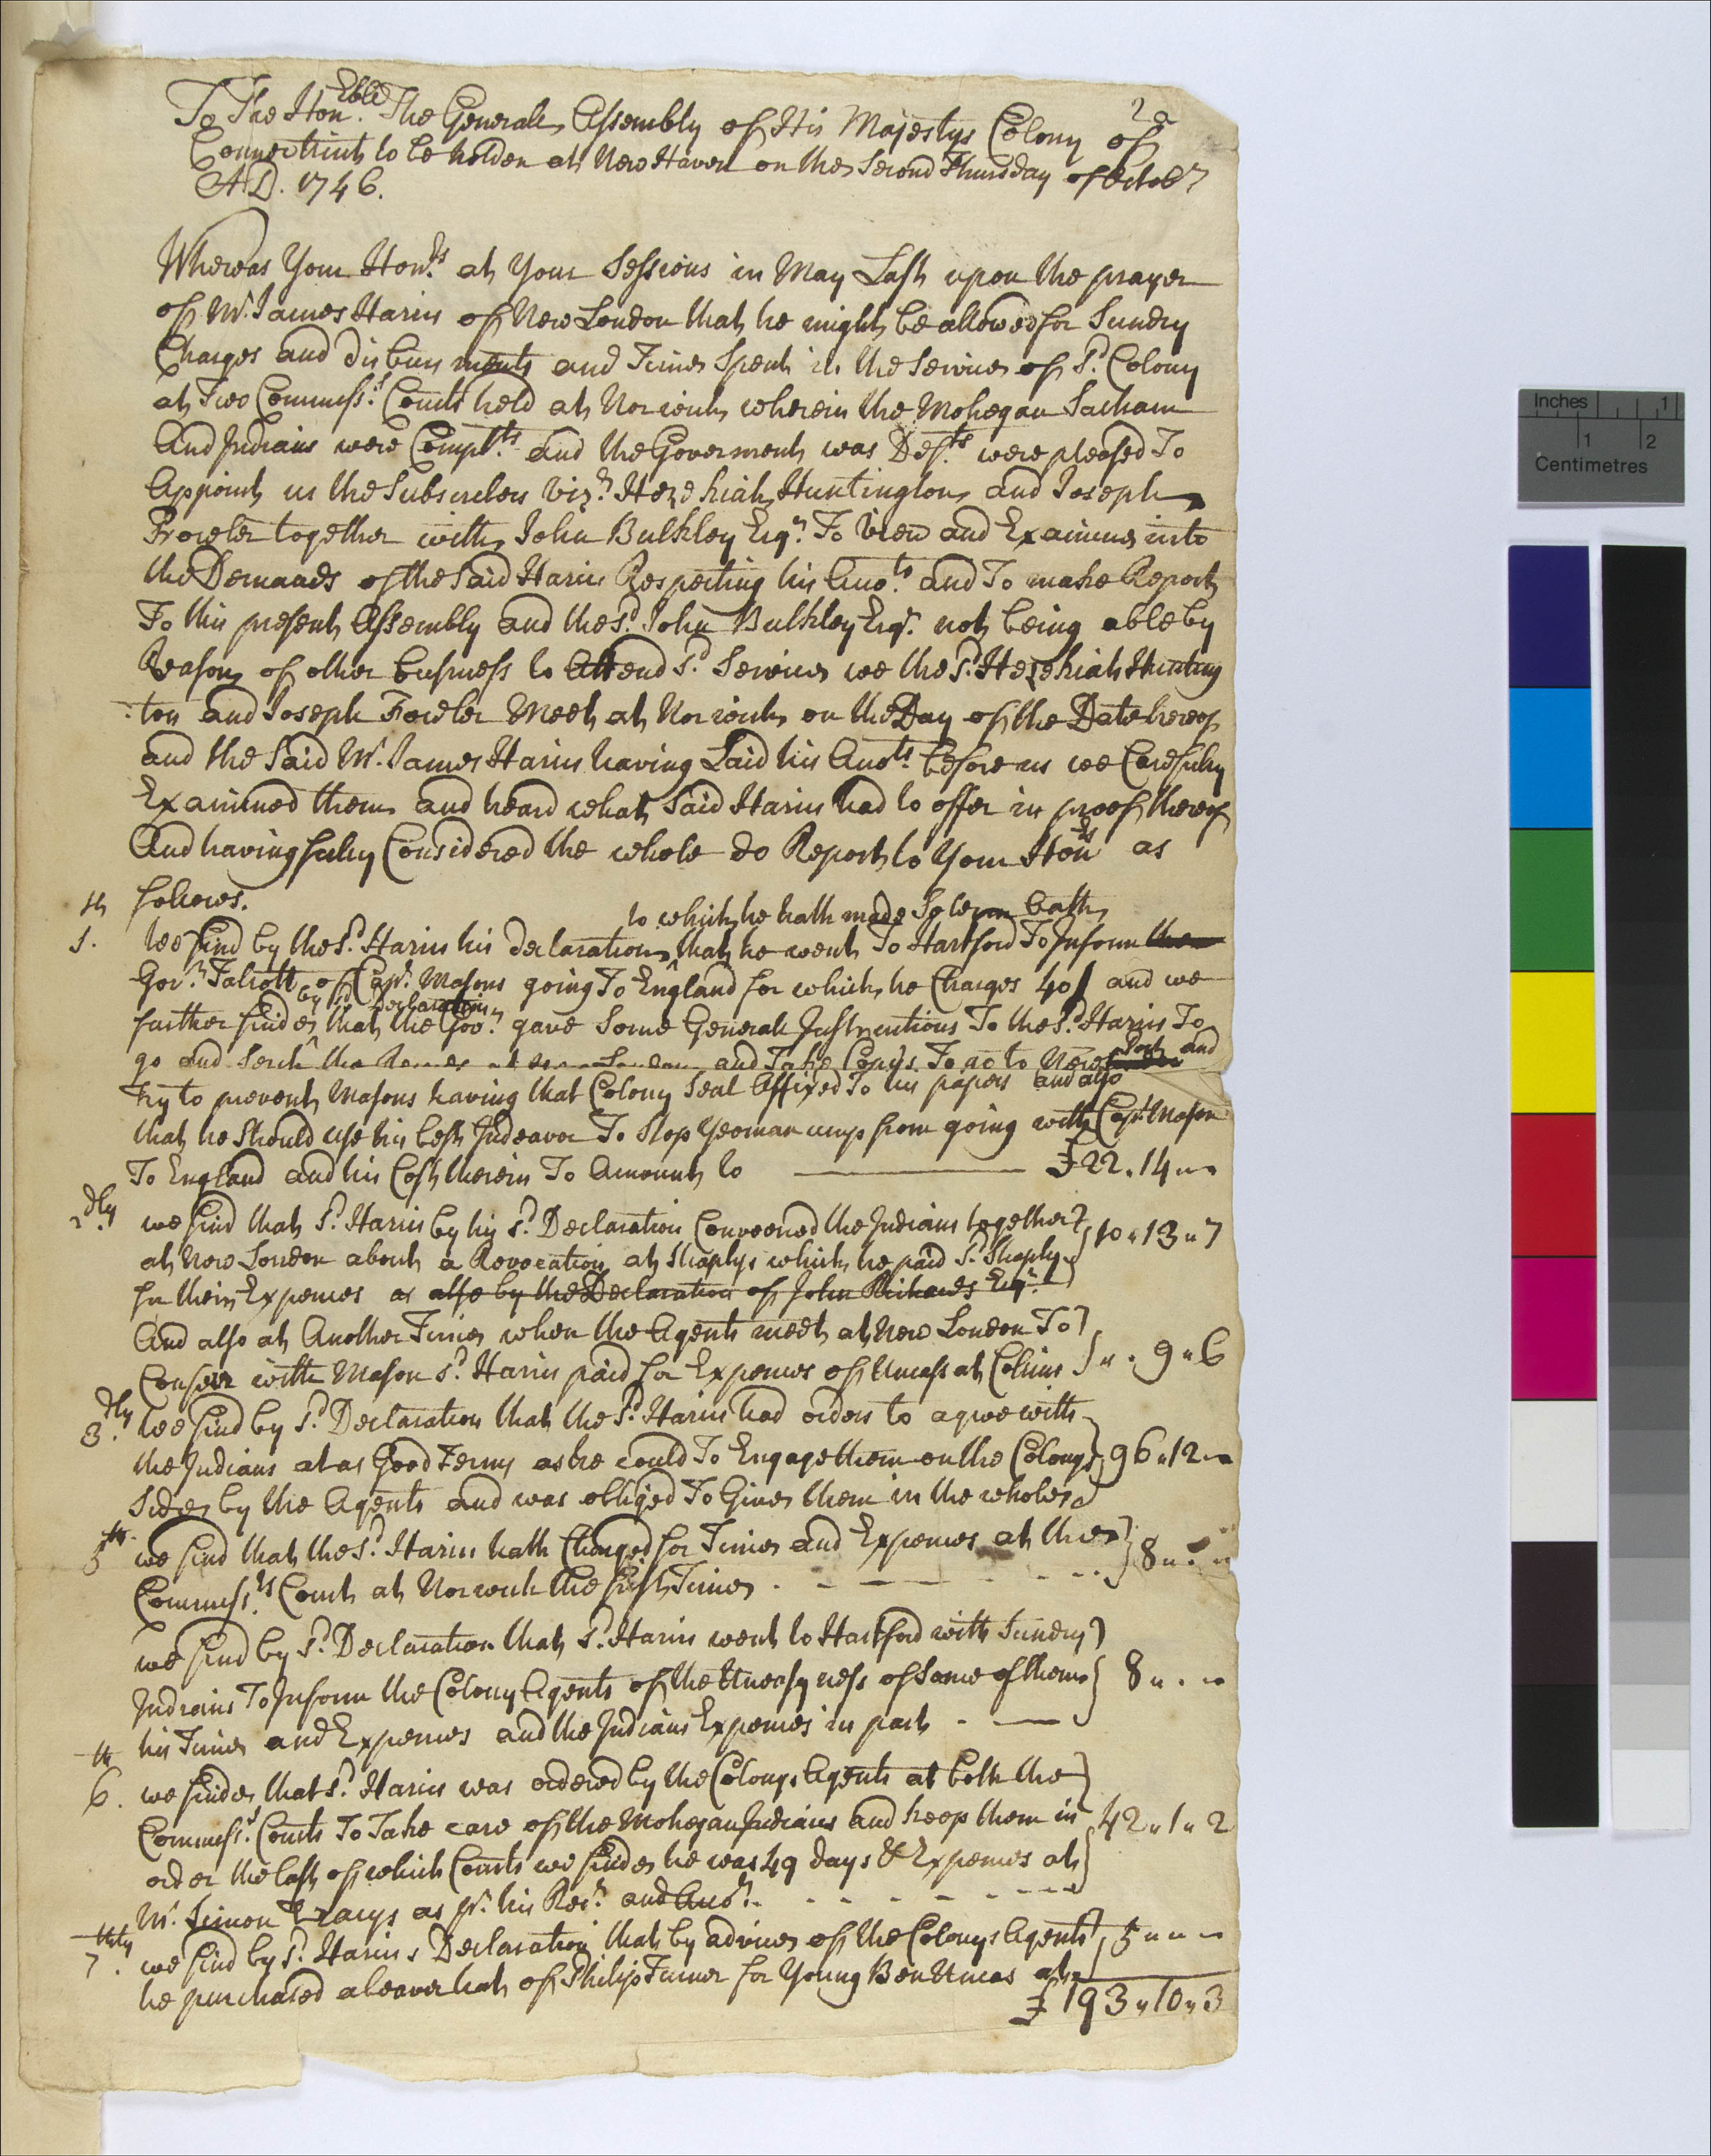 2a
To The Hon.ble The Generall Assembly of His Majestys Colony of
Connecticut to be holden at New Haven on the Second Thursday of Octobr
A.D. 1746.
Whereas Your Hon.rs at Your Sessions in May Last upon the prayer
of Mr. James Harris of New London that he might be allowed for Sundry
Charges and disbursments and Time Spent in the Service of sd. Colony
at Two Commess.rs Courts held at Norwich wherein the Mohegan Sacham
And Indians were Complts. and the Goverment was Defts. were pleased To
Appoint us the Subscribers Vizt. Hezekiah Huntington and Joseph
Fowler together with John Bulkley Esqr. To View and Examine into
the Demands of the Said Harris Respecting his Accots. and To make Report
To this present Assembly and the sd. John Bulkley Esqr. not being able by
Reason of other busness to Attend sd. Service we the sd. Hezekiah Hunting
ton and Joseph Fowler Meet at Norwich on the Day of the Date hereof
and the Said Mr. James Harris having Laid his Accots. before us we Carefully
Examined them and heard what Said Harris had to offer in proof thereof
And having fully Considered the whole do Report to Your Honrs as
follows.
to which he hath made Solemn Oath
1. We find by the sd. Harris his declaration that he went To Hartford To Inform the
Govr. Talcott of Capt. Masons going To England for which he Charges 40/ and we
by sd Declaration
further finde that the Govr. gave Some Generall Instructions To the sd. Harris To
go and Serch the at New London and Take Copys To go to New Port and
try to prevent Masons having that Colony Seal Affixed To his papers and also
that he Should use his best Indeavor To Stop Yeoman uncas from going with Capt. Mason
To England and his Cost therein To Amount to £22.14..
2dly. we find that sd. Harris by his sd. Declaration Conveened the Indians together
at New London about a Revocation at Shaplys which he paid sd. Shaply 10"13"7
for their Expences as also by the Declaration of John Richards Esqr.
And also at Another Time when the Agents meet at New London To
Confeir with Mason sd. Harris paid for Expences of Uncass at Collins " . 9"6
3.dly We find by sd. Declaration that the sd. Harris had orders to agree with
the Indians at as Good Terms as he could To Engage them on the Colonys 96"12"
Side by the Agents and was obliged To Give them in the whole
5th we find that the sd. Harris hath Charged for Time and Expences at the
Commess.rs Court at Norwich the first Time 8"."
we find by sd. Declaration that sd. Harris went to Hartford with Sundry
Indians To Inform the Colony Agents of the Uneasyness of Some of them 8"."
his Time and Expences and the Indians Expences in part
6.th we finde that sd. Harris was ordered by the Colonys Agents at both the
Commess.rs Courts To Take care of the Mohegan Indians and keep them in 42"1"2
order the last of which Courts we finde he was 49 days & Expences at
Mr. Simon Tracys as pr. his Rect. and Accot.
7.thly we find by sd. Harriss Declaration that by advice of the Colonys Agents 5"""
he purchased a beaver hat of Philip Turner for Young Ben Uncas at
£193"10"3